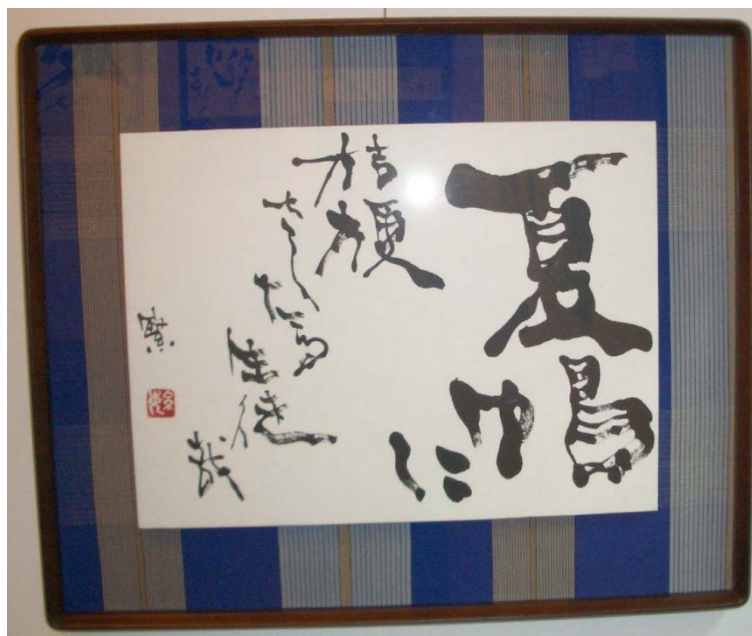 夏帽に
桔梗
さしたる生徒哉